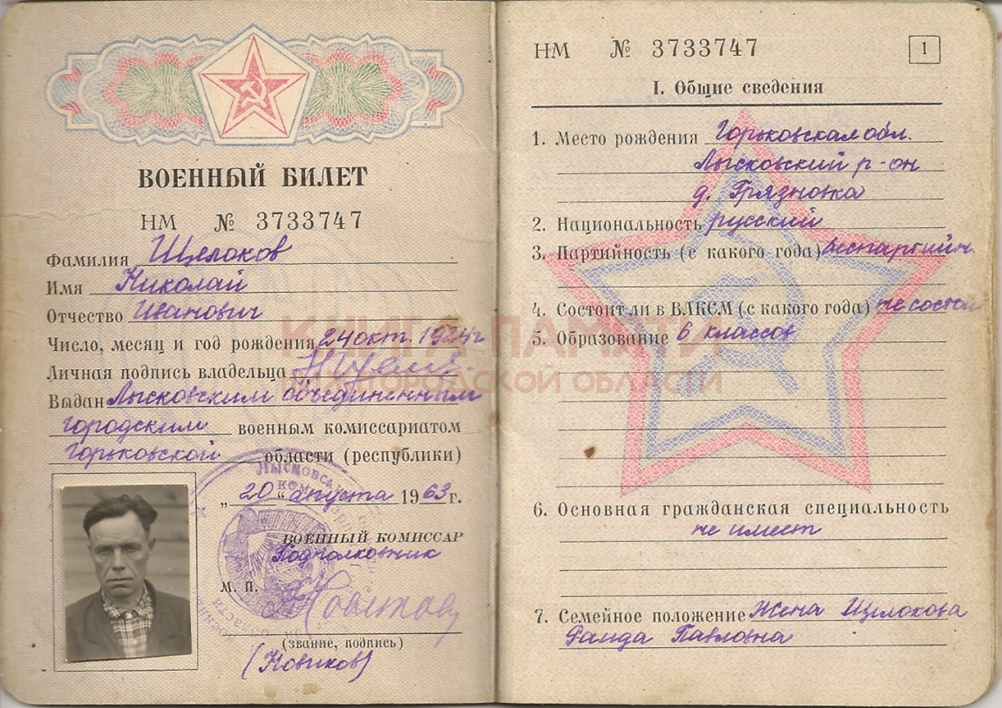 ВОЕННЫЙ БИЛЕТ
НМ № 3733747
Фамилия Щелоков
Имя Николай
Отчество Иванович
Число, месяц и год рождения 24 окт. 1924г
Личная подпись владельца
Выдан Лысковским объединенным
городским военным комиссариатом
Горьковской области (республики)
„20“ августа 1963 г.
ВОЕННЫЙ КОМИССАР
Подполковник
М. П.
(звание, подпись)
(Новиков)
НМ № 3733747
1
I. Общие сведения
1. Место рождения Горьковская обл.
Лысковский р-он
д. Грязновка
2. Национальность русский
3. Партийность (с какого года) беспартийн.
4. Состоит ли в ВЛКСМ (с какого года) не состои
5. Образование 6 классов
6. Основная гражданская специальность
не имеет
7. Семейное положение Жена Щелокова
Фаида Павловна
КНИГА ПАМЯТИ
НИЖЕГОРОДСКОЙ ОБЛАСТИ